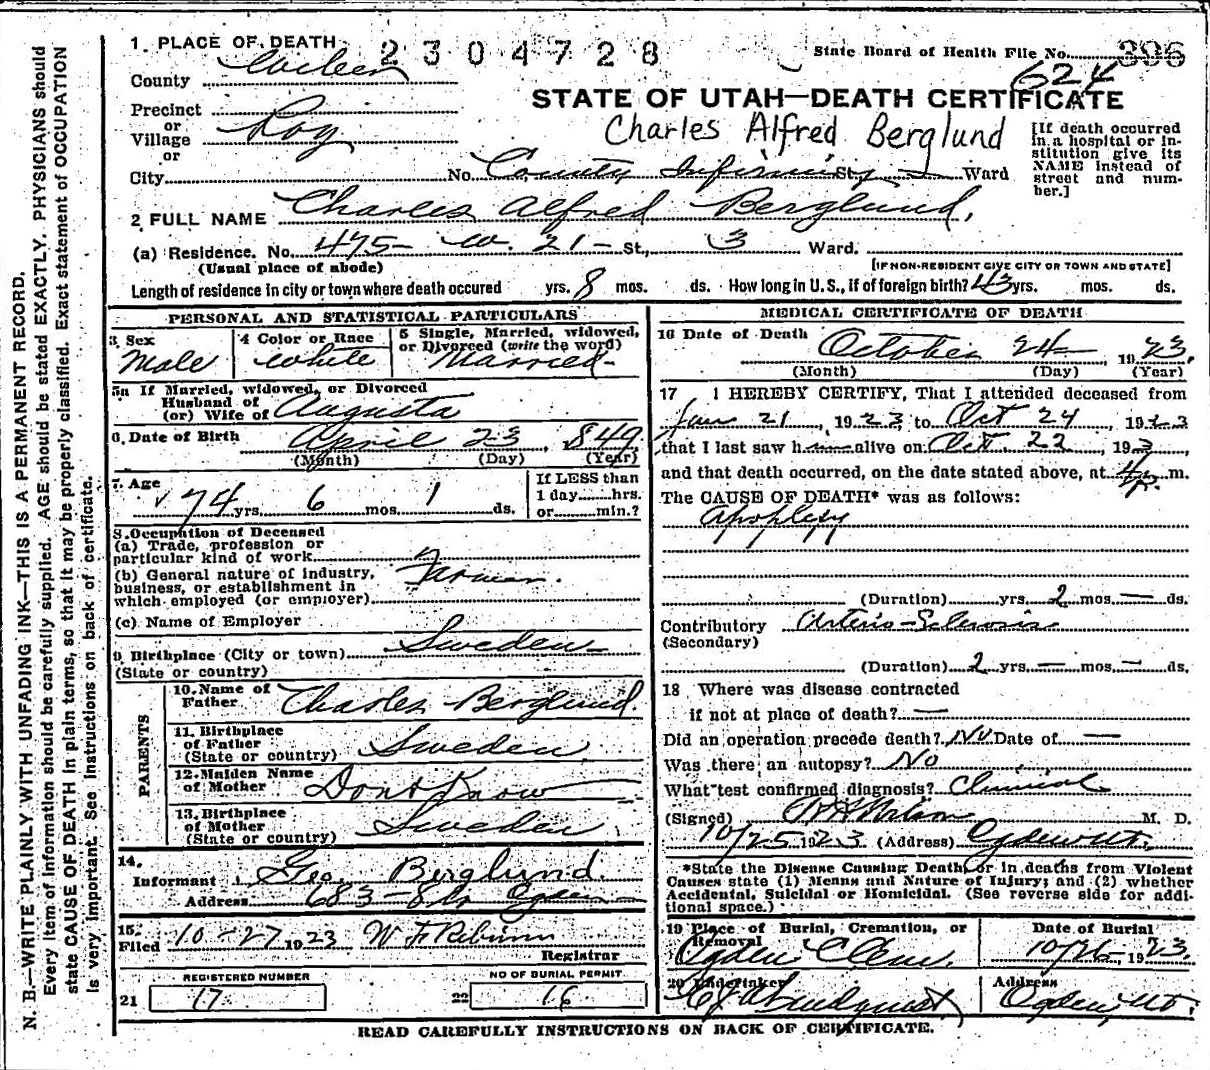 1. PLACE OF DEATH 2304728 State Board of Health File No. 396
County Weber 624
STATE OF UTAH—DEATH CERTIFICATE
Precinct
or
Village Roy
or
Charles Alfred Berglund
[If death occurred in a hospital or in-
stitution give its
NAME instead of
street and num-
ber.]
City No. County Infirmary St. Ward
2 FULL NAME Charles Alfred Berglund,
(a) Residence. No. 475- W. 21- St., 3 Ward.
(Usual place of abode) [IF NON-RESIDENT GIVE CITY OR TOWN AND STATE]
Length of residence in city or town where death occured yrs. 8 mos. ds. How long in U.S., if of foreign birth? 43 yrs. mos. ds.
PERSONAL AND STATISTICAL PARTICULARS
3 Sex Male
4 Color or Race White
5 Single, Married, widowed,
or Divorced (write the word)
Married-
5a If Married, widowed, or Divorced
Husband of
(or) Wife of Augusta
6. Date of Birth April 23, 1849
(Month) (Day) (Year)
7. Age
74 yrs. 6 mos. 1 ds.
If LESS than
1 day hrs.
or min.?
8. Occupation of Deceased
(a) Trade, profession or
particular kind of work
(b) General nature of industry,
business, or establishment in
which employed (or employer)
Farmer.
(c) Name of Employer
9 Birthplace (City or town) Sweden
(State or country)
PARENTS
10. Name of
Father Charles Berglund.
11. Birthplace
of Father
(State or country) Sweden
12. Maiden Name
of Mother Dont Know
13. Birthplace
of Mother
(State or country) Sweden
14.
Informant Geo. Berglund.
Address 683-8th Ogden
15.
Filed 10-27 1923
Registrar
REGISTERED NUMBER
21 17
NO OF BURIAL PERMIT
22 16
MEDICAL CERTIFICATE OF DEATH
16 Date of Death October 24 1923.
(Month) (Day) (Year)
17 I HEREBY CERTIFY, That I attended deceased from
21, 1923 to Oct 24, 1923
that I last saw h alive on Oct. 22, 1923,
and that death occurred, on the date stated above, at 4 P. m.
The CAUSE OF DEATH* was as follows:
Apoplexy
(Duration) yrs. 2 mos. — ds.
Contributory Arterio-Sclerosis
(Secondary)
(Duration) 2 yrs. — mos. — ds.
18 Where was disease contracted
if not at place of death? —
Did an operation precede death? No Date of —
Was there an autopsy? No
What test confirmed diagnosis? Clinical
(Signed) Wilson M. D.
10/25 1923 (Address) Ogden Ut.
*State the Disease Causing Death, or in deaths from Violent
Causes state (1) Means and Nature of Injury; and (2) whether
Accidental, Suicidal or Homicidal. (See reverse side for addi-
tional space.)
19 Place of Burial, Cremation, or
Removal
Ogden Cem.
Date of Burial
10/26 1923.
20 Undertaker
Lindquist
Address
Ogden, Ut.
READ CAREFULLY INSTRUCTIONS ON BACK OF CERTIFICATE.
N. B.—WRITE PLAINLY WITH UNFADING INK—THIS IS A PERMANENT RECORD.
Every item of information should be carefully supplied. AGE should be stated EXACTLY. PHYSICIANS should
state CAUSE OF DEATH in plain terms, so that it may be properly classified. Exact statement of OCCUPATION
is very important. See instructions on back of certificate.